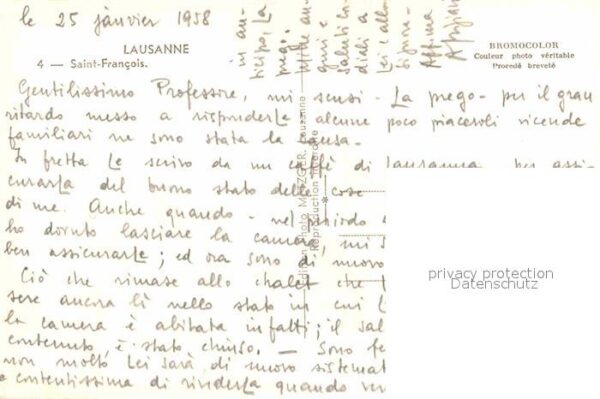 le 25 janvier 1958
LAUSANNE
4 — Saint-François.
BROMOCOLOR
Couleur photo véritable
Procédé breveté
Gentilissimo Professore, mi scusi - La prego - per il gran
ritardo messo a risponderLe alcune poco piacevoli vicende
familiari ne sono stata la causa.
In fretta Le scrivo da un caffè di Lausanna per assi-
curarLa del buono stato delle cose
di me. Anche quando - nel periodo
ho dovuto lasciare la camera, mi
ben assicurarLe; ed ora sono di nuovo
Ciò che rimase allo chalet che
sere ancora lì nello stato in cui
la camera è abitata infatti; il sal
contenuto, è stato chiuso. — Sono
non molto Lei sarà di nuovo sistemat
contentissima di rivederLa quando ver
in an-
ticipo, La
prego.
Mille au-
guri e
saluti co-
diali a
Lei e alla
Signora.
METZGER, Lausanne
Reproduction interdite
privacy protection
Datenschutz